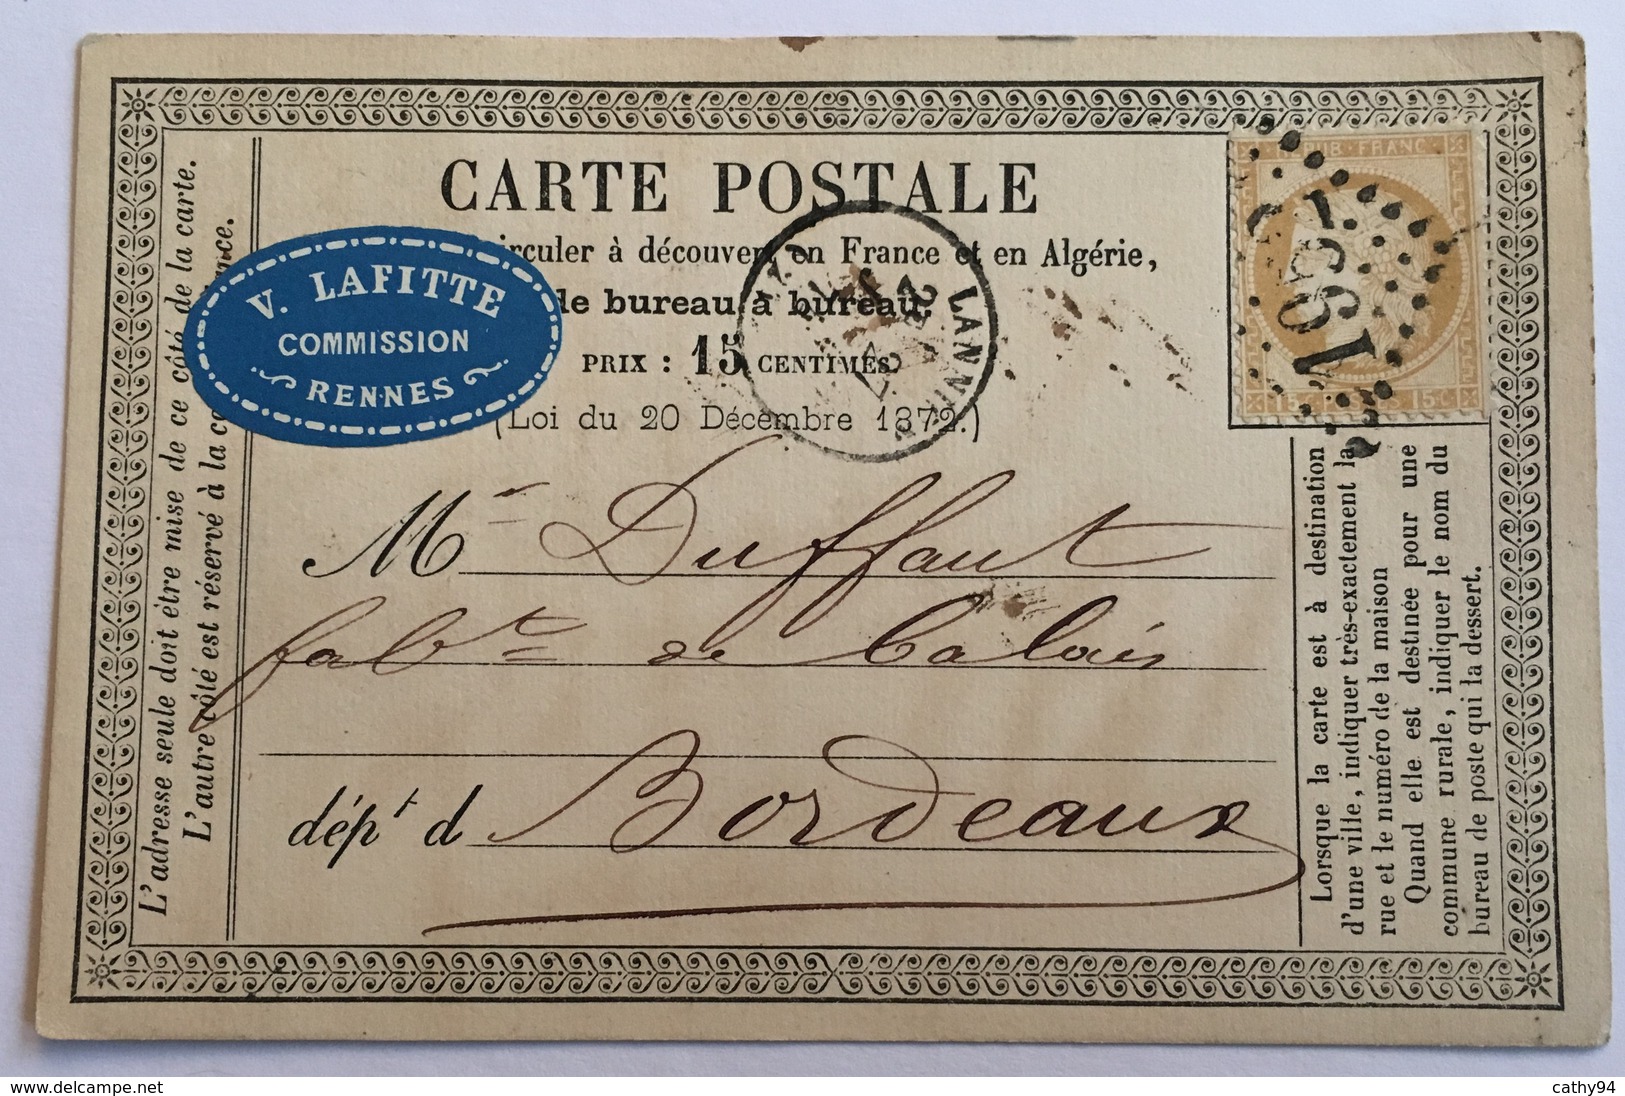 CARTE POSTALE
circuler à découvert en France et en Algérie,
de bureau à bureau.
PRIX : 15 CENTIMES
(Loi du 20 Décembre 1872.)
V. LAFITTE
COMMISSION
RENNES
LANNION
REPUB. FRANC
15c 15c
1997
Mr Duffaut
fabt de Calais
dépt d Bordeaux
L'adresse seule doit être mise de ce côté de la carte.
L'autre côté est réservé à la
Lorsque la carte est à destination
d'une ville, indiquer très-exactement la
rue et le numéro de la maison
Quand elle est destinée pour une
commune rurale, indiquer le nom du
bureau de poste qui la dessert.
delcampe.net
cathy94